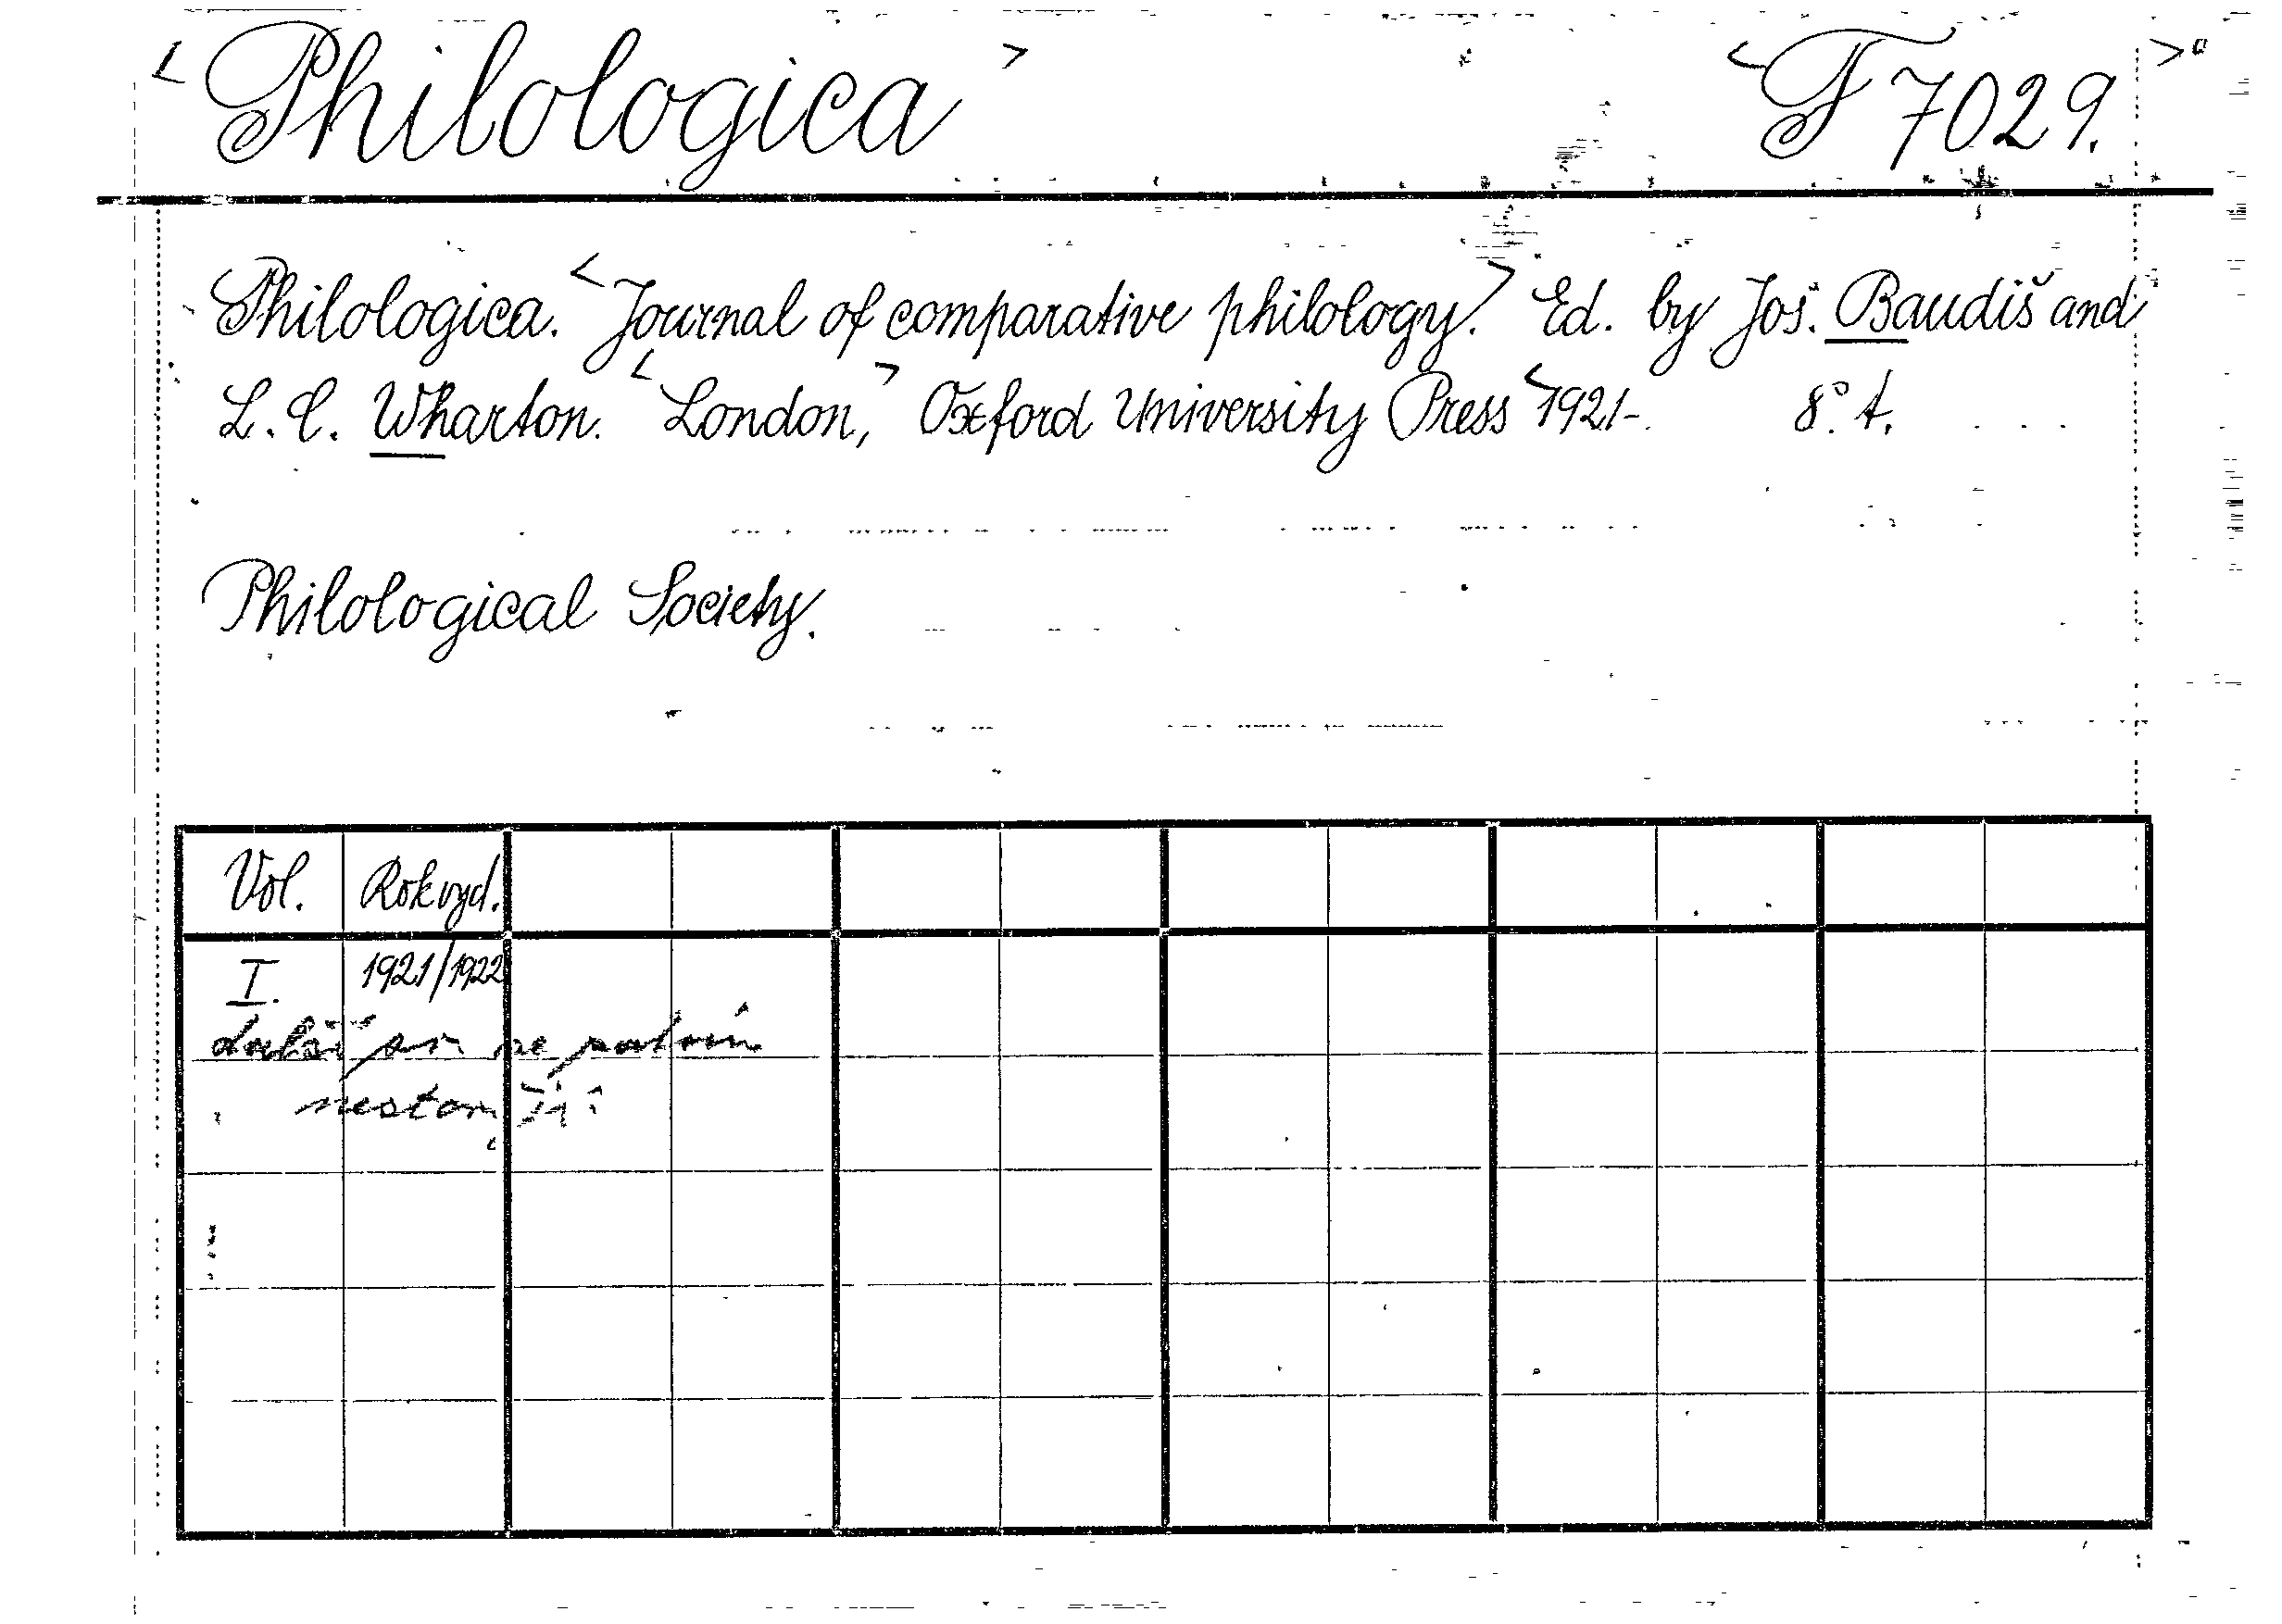 < Philologica > < F 7029. >
Philologica. < Journal of comparative philology. > Ed. by Jos. Baudiš and
L. C. Wharton. < London, > Oxford University Press < 1921-. 8°. t.
Philological Society.
Vol. Rok vyd.
I. 1921/1922
další se